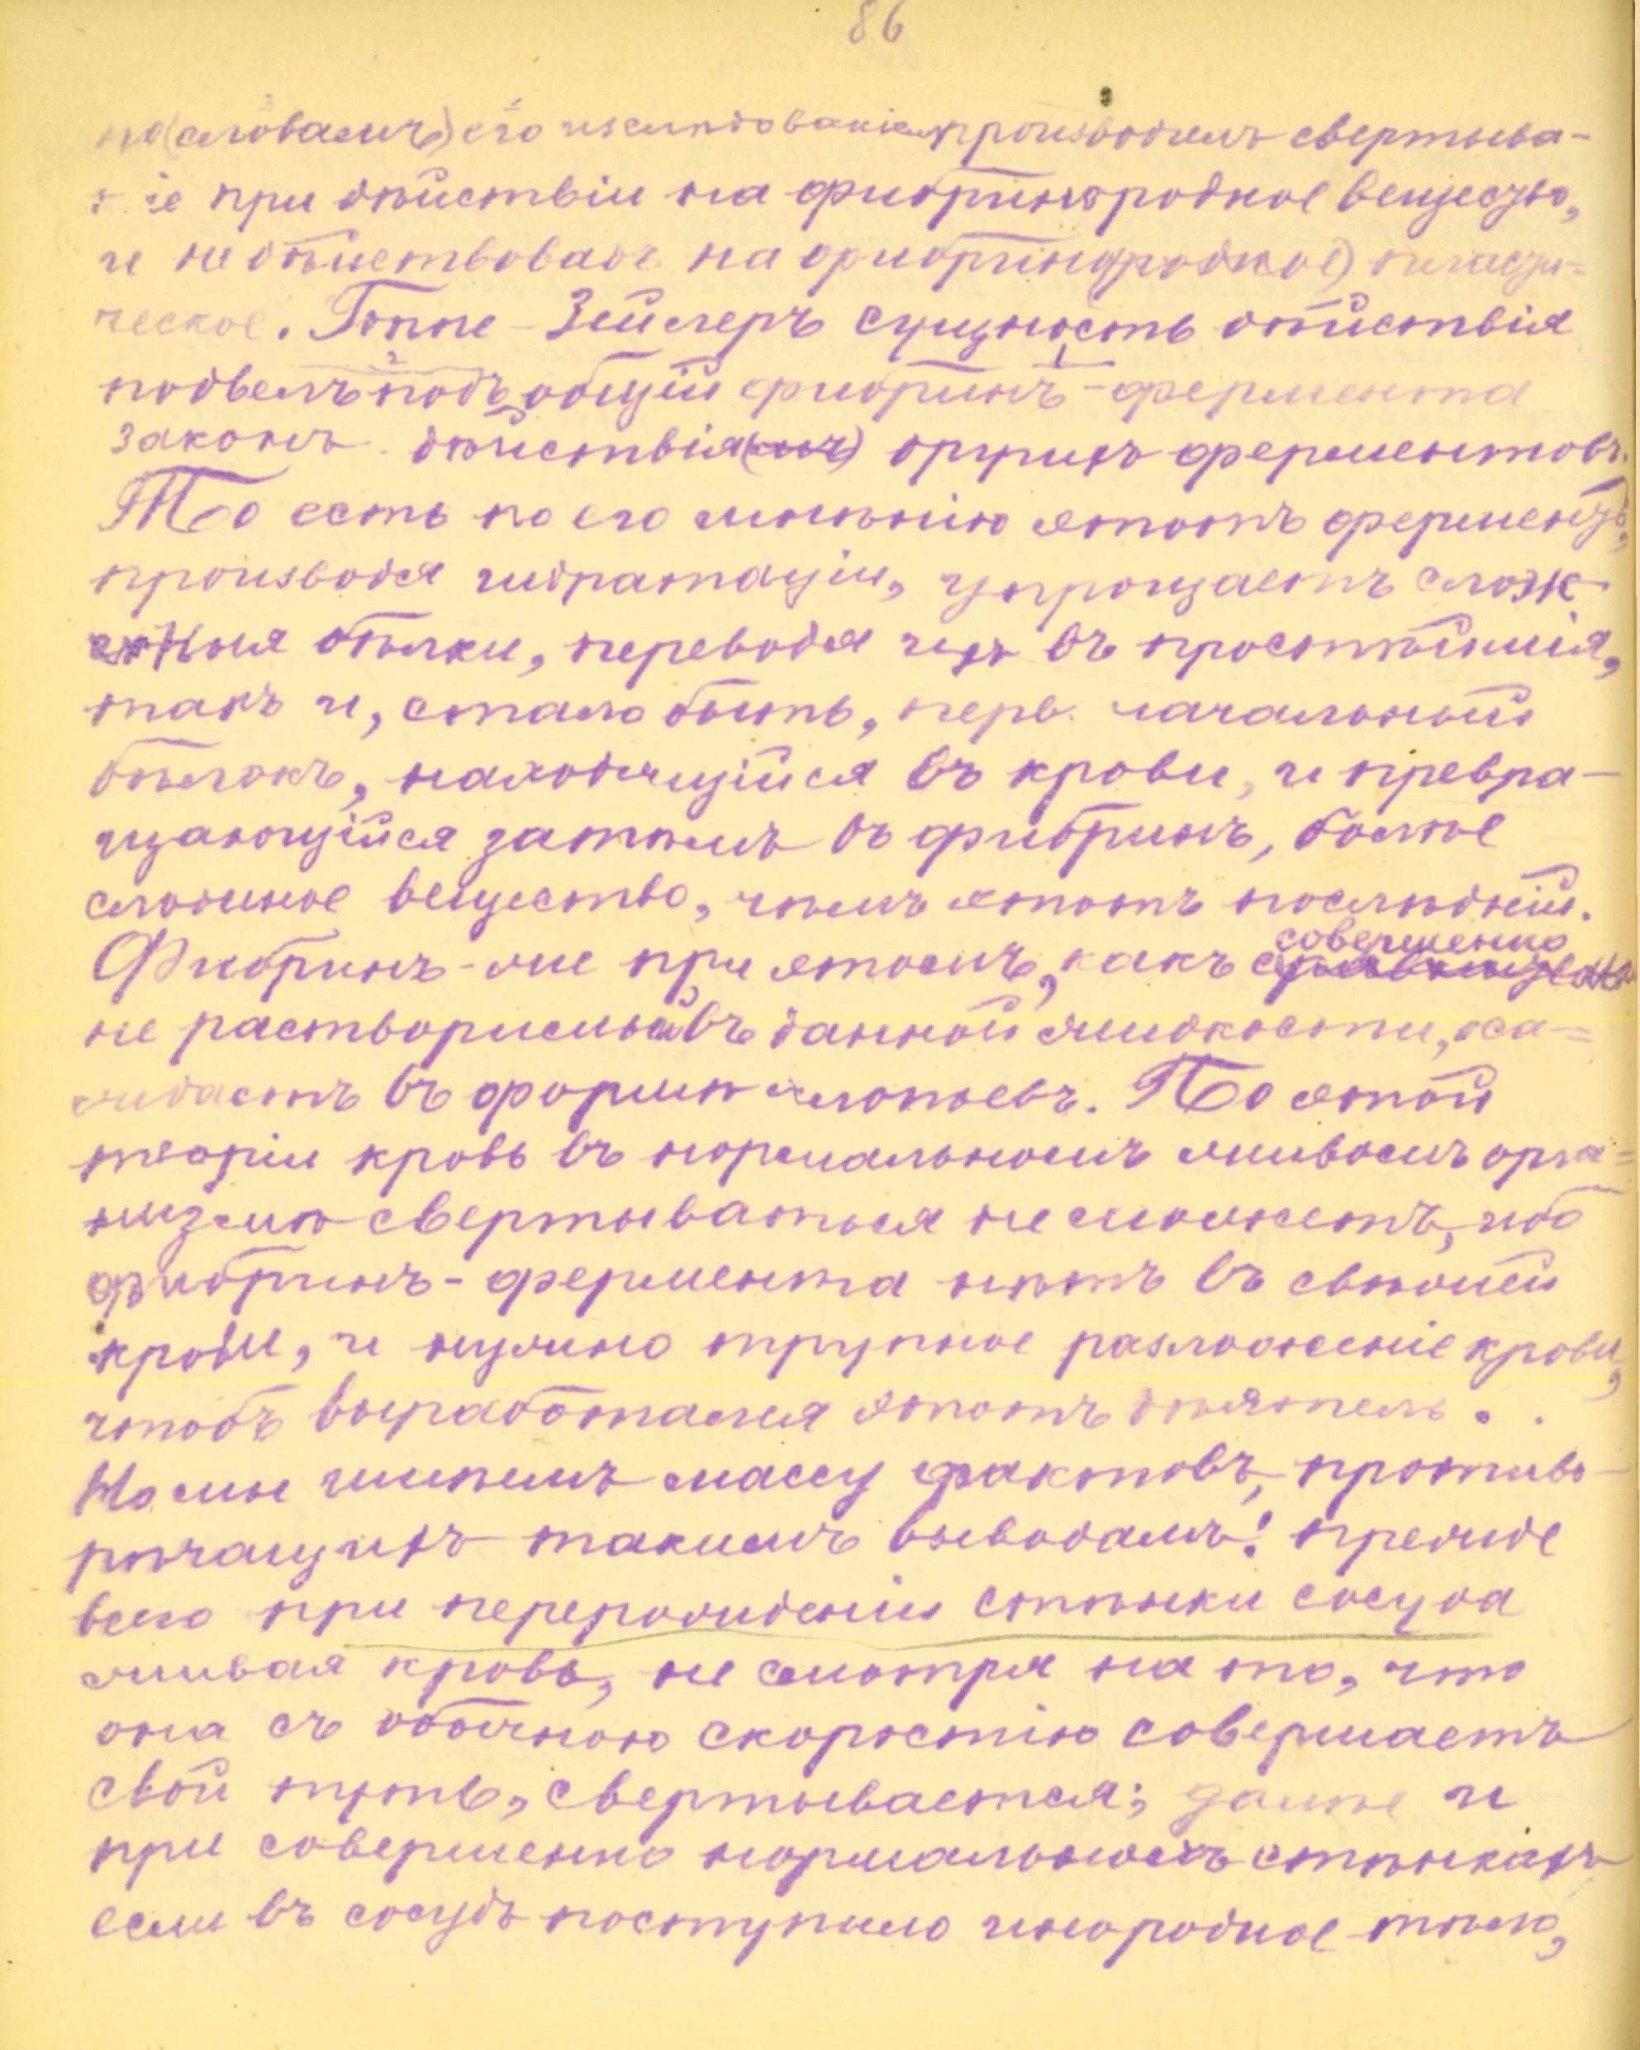 86
по (словамъ) его изслѣдованіямъ производилъ свертыва-
ніе при дѣйствіи на фибриногородное вещество,
и не дѣйствовалъ на фибриногородное) пласти-
ческое. Гоппе-Зейлеръ сущность дѣйствія
подвелъ подъ общій фибринъ-фермента
законъ дѣйствія другихъ ферментовъ.
То есть по его мнѣнію этотъ ферментъ,
производя гидратацію, упрощаетъ слож-
ныя бѣлки, переводя ихъ въ простѣйшія,
такъ и, стало быть, перв. начальный
бѣлокъ, находящійся въ крови, и превра-
щающійся затѣмъ въ фибринъ, болѣе
сложное вещество, чѣмъ этотъ послѣдній.
Фибринъ-же при этомъ, какъ совершенно
не растворимый въ данной жидкости, оса-
ждаетъ въ формѣ хлопьевъ. По этой
теоріи кровь въ нормальномъ живомъ орга-
низмѣ свертываться не можетъ, ибо
фибринъ-фермента нѣтъ въ свѣжей
крови, и нужно трупное разложеніе крови,
чтобъ выработался этотъ дѣятель.
Но мы имѣемъ массу фактовъ, противо-
рѣчащихъ такимъ выводамъ: прежде
всего при перерожденіи стѣнки сосуда
живая кровь, не смотря на то, что
она съ обычною скоростію совершаетъ
свой путь, свертывается; далѣе и
при совершенно нормальныхъ стѣнкахъ
если въ сосудъ поступило инородное тѣло,